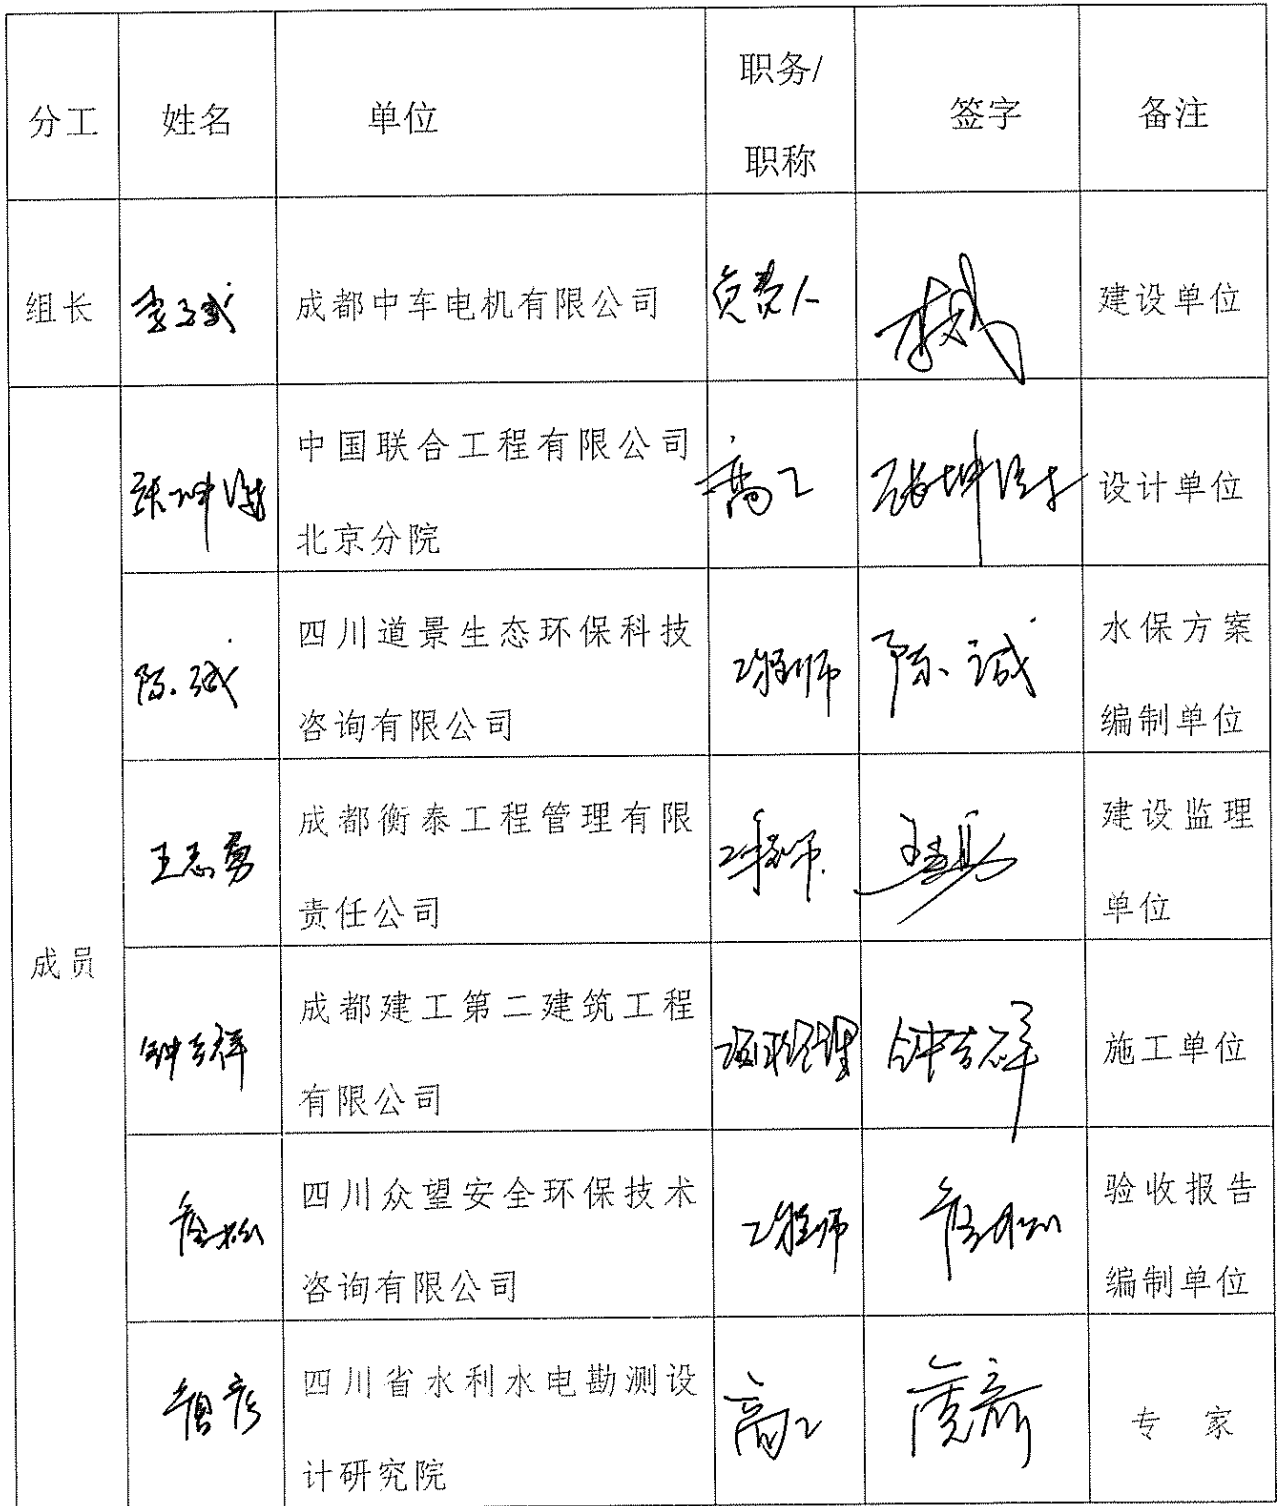 分工 姓名 单位 职务/职称 签字 备注
组长 成都中车电机有限公司 负责人 建设单位
成员
中国联合工程有限公司
北京分院
高工 设计单位
陈诚
四川道景生态环保科技
咨询有限公司
工程师 陈诚
水保方案
编制单位
王志勇
成都衡泰工程管理有限
责任公司
工程师 王志勇
建设监理
单位
钟吉祥
成都建工第二建筑工程
有限公司
项目经理 钟吉祥 施工单位
四川众望安全环保技术
咨询有限公司
工程师
验收报告
编制单位
四川省水利水电勘测设
计研究院
高工 专家